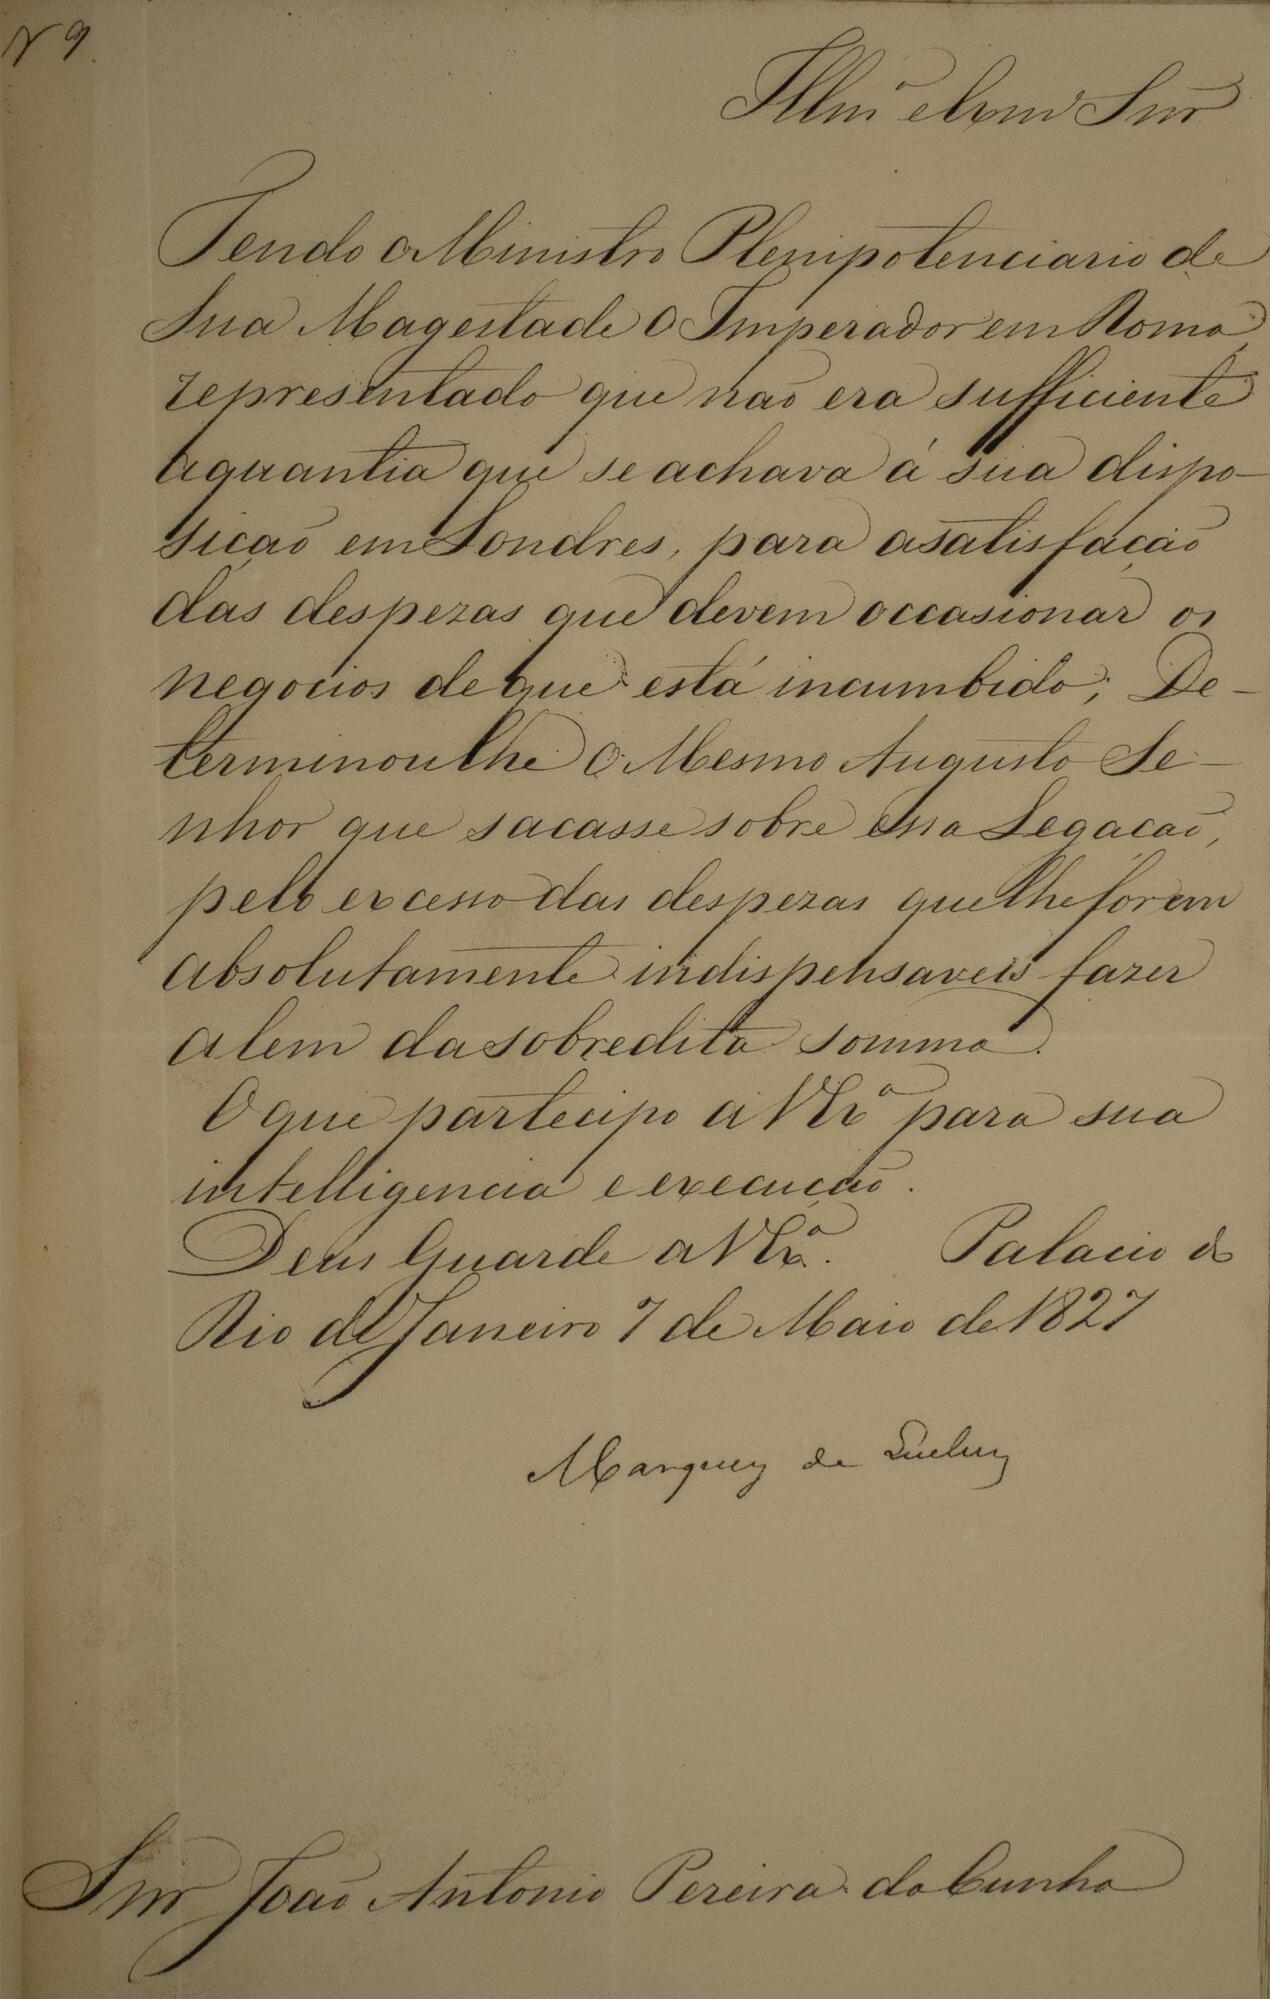 N 9
Illmo e Exmo Snr
Tendo o Ministro Plenipotenciario de
Sua Magestade O Imperador em Roma,
representado que não era sufficiente
aquantia que se achava á sua dispo-
sição em Londres, para asatisfação
das despezas que devem occasionar os
negocios de que está incumbido; De-
terminoulhe O Mesmo Augusto Se-
nhor que sacasse sobre essa Legação,
pelo excesso das despezas que lhe forem
absolutamente indispensaveis fazer
alem da sobredita somma.
O que partecipo a VExa para sua
intelligencia e execução.
Deus Guarde a VExa. Palacio do
Rio de Janeiro 7 de Maio de 1827
Marquez de Queluz
Snr João Antonio Pereira da Cunha